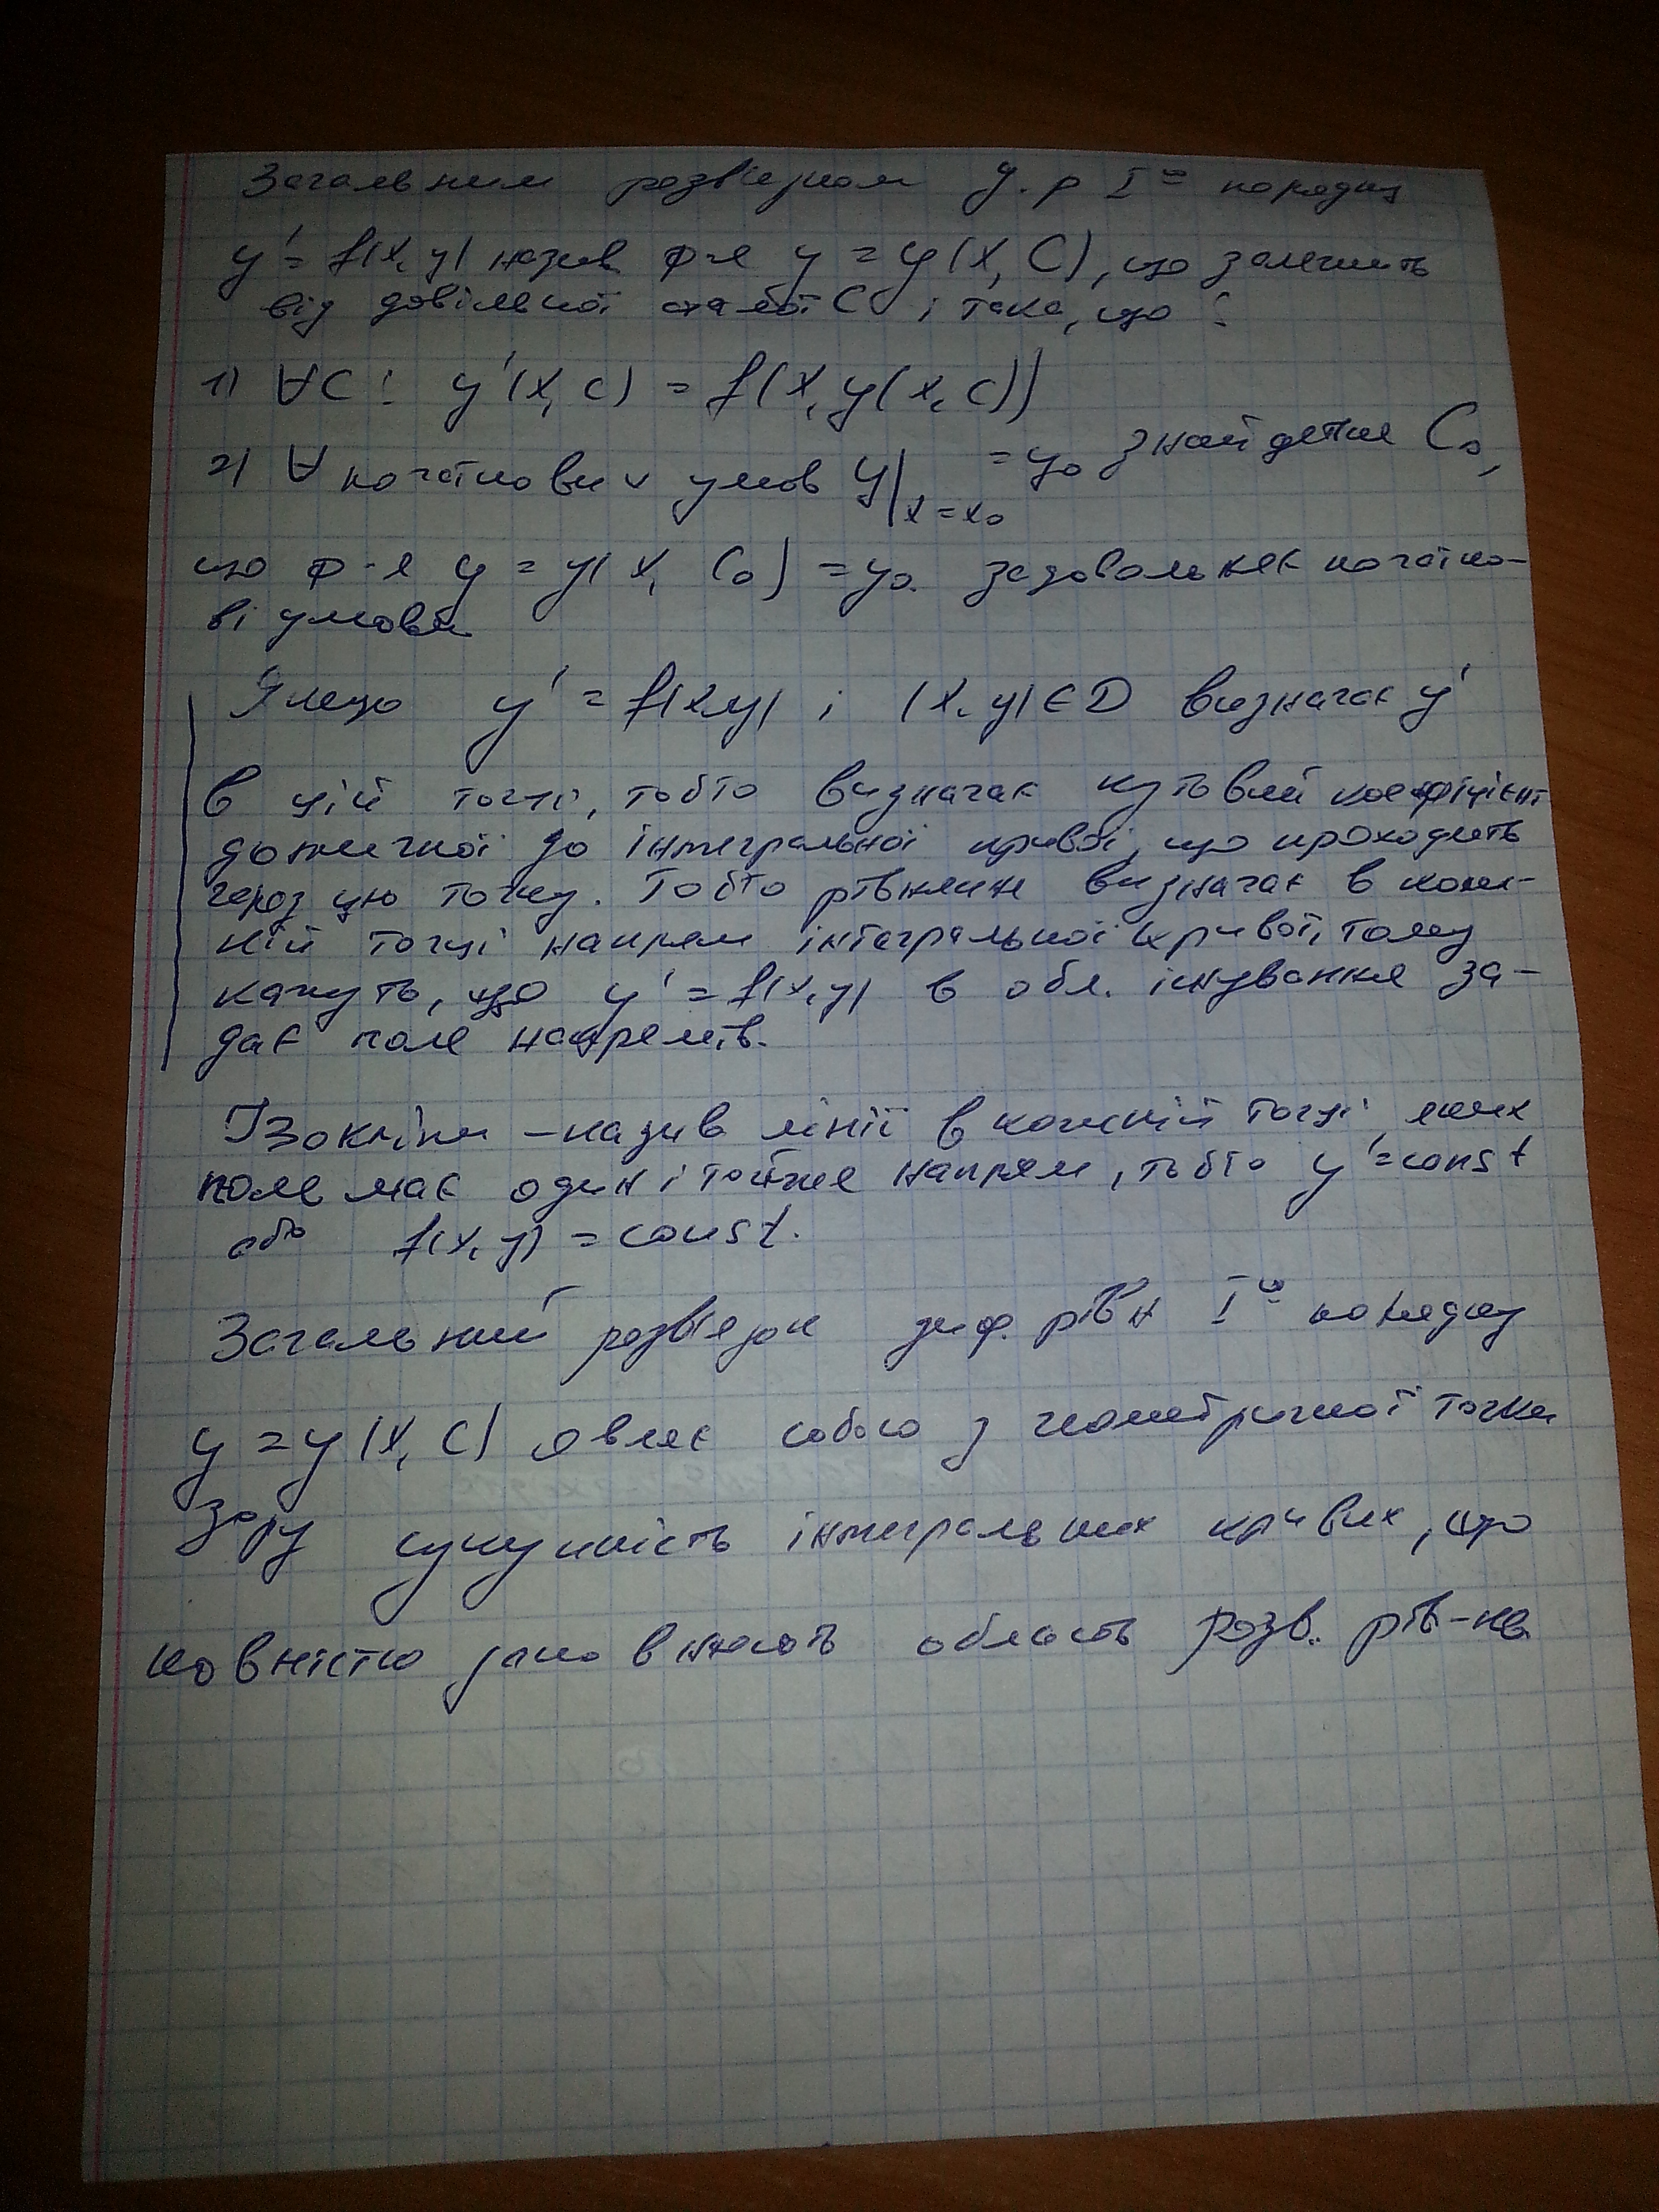 Загальним розв'язком д.р Iго порядку
y' = f(x, y) назив ф-я y = y(x, C), що залежить
від довільної сталої C і така, що :
1) ∀C : y'(x, c) = f(x, y(x, c))
2) ∀ початкових умов y|x=x₀ = y₀ знайдеться C₀,
що ф-я y = y(x, C₀) = y₀. задовольняє початко-
ві умови
Якщо y' = f(x,y) і (x, y) ∈ D визначає y'
в цій точці, тобто визначає кутовий коефіцієнт
дотичної до інтегральної кривої, що проходить
через цю точку. Тобто рівняння визначає в кож-
ній точці напрям інтегральної кривої, тому
кажуть, що y' = f(x, y) в обл. існування за-
дає поле напрямів.
Ізокліни – назив лінії в кожній точці яких
поле має один і той же напрям, тобто y' = const
або f(x, y) = const.
Загальний розв'язок диф. рівн Iго порядку
y = y(x, C) являє собою з геометричної точки
зору сукупність інтегральних кривих, що
повністю заповнюють область розв. рів-ня